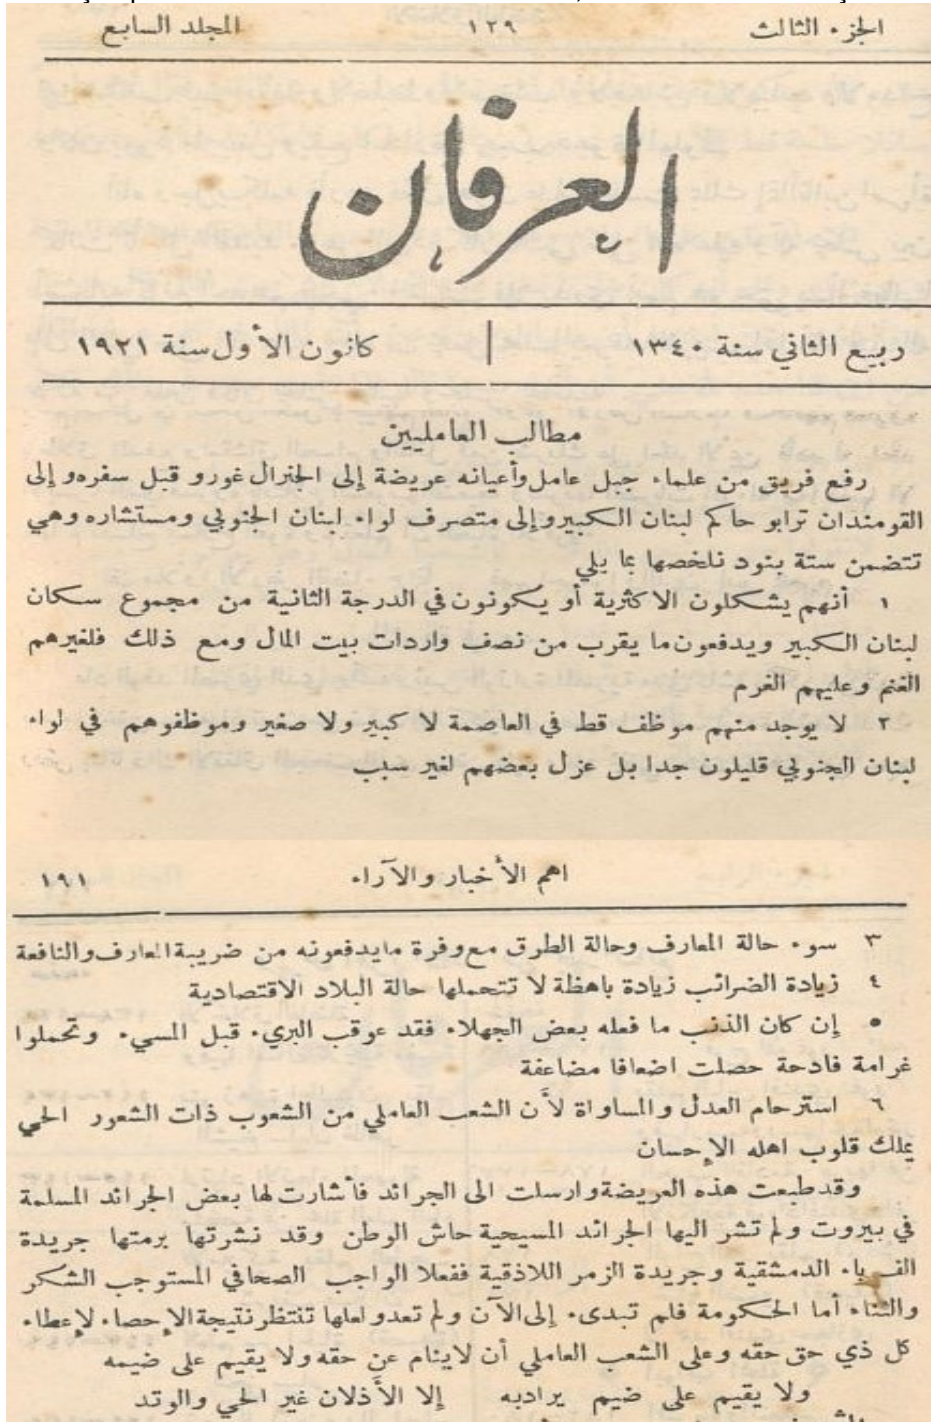 الجزء الثالث ١٢٩ المجلد السابع
العرفان
ربيع الثاني سنة ١٣٤٠ | كانون الأول سنة ١٩٢١
مطالب العامليين
رفع فريق من علماء جبل عامل وأعيانه عريضة إلى الجنرال غورو قبل سفره وإلى
القومندان ترابو حاكم لبنان الكبير وإلى متصرف لواء لبنان الجنوبي ومستشاره وهي
تتضمن ستة بنود نلخصها بما يلي
١ أنهم يشكلون الاكثرية أو يكونون في الدرجة الثانية من مجموع سكان
لبنان الكبير ويدفعون ما يقرب من نصف واردات بيت المال ومع ذلك فلغيرهم
الغنم وعليهم الغرم
٢ لا يوجد منهم موظف قط في العاصمة لا كبير ولا صغير وموظفوهم في لواء
لبنان الجنوبي قليلون جدا بل عزل بعضهم لغير سبب
اهم الأخبار والآراء ١٩١
٣ سوء حالة المعارف وحالة الطرق مع وفرة مايدفعونه من ضريبة المعارف والنافعة
٤ زيادة الضرائب زيادة باهظة لا تتحملها حالة البلاد الاقتصادية
٥ إن كان الذنب ما فعله بعض الجهلاء فقد عوقب البريء قبل المسيء وتحملوا
غرامة فادحة حصلت اضعافا مضاعفة
٦ استرحام العدل والمساواة لأن الشعب العاملي من الشعوب ذات الشعور الحي
يملك قلوب اهله الإحسان
وقد طبعت هذه العريضة وارسلت الى الجرائد فأشارت لها بعض الجرائد المسلمة
في بيروت ولم تشر اليها الجرائد المسيحية حاش الوطن وقد نشرتها برمتها جريدة
الف باء الدمشقية وجريدة الزمر اللاذقية ففعلا الواجب الصحافي المستوجب الشكر
والثناء أما الحكومة فلم تبدىء إلى الآن ولم تعد ولعلها تنتظر نتيجة الإحصاء لإعطاء
كل ذي حق حقه وعلى الشعب العاملي أن لاينام عن حقه ولا يقيم على ضيمه
ولا يقيم على ضيم يرادبه إلا الأذلان غير الحي والوتد